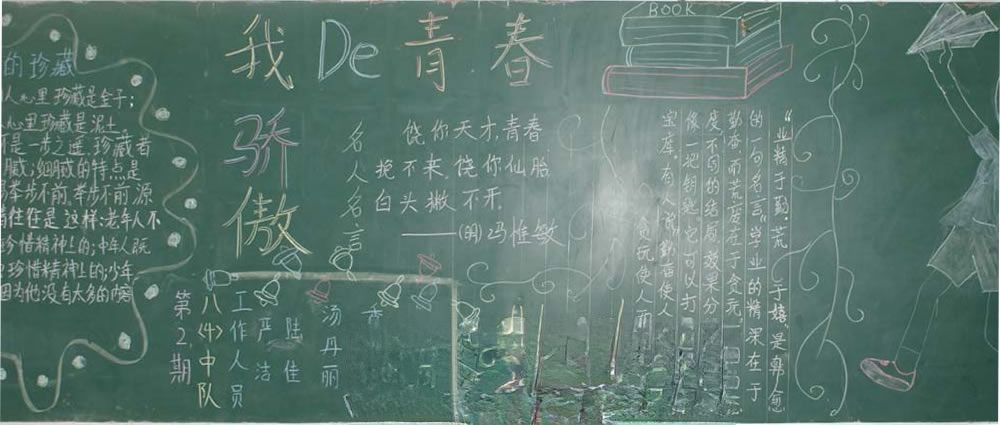 我De青春
骄傲
BOOK
的珍藏
人心里珍藏是金子;
心里珍藏是泥土
是一步之遥,珍藏者
腻;细腻的特点是
举步不前,举步不前源
性在是这样:老年人不
珍惜精神上的;中年人既
珍惜精神上的;少年
因为他没有太多的
名人名言
饶你天才,青春
挽不来,饶你仙胎
白头撇不开,
——(明)冯惟敏
“业精于勤,荒于嬉”是韩愈
的一句名言,学业的精深在于
勤奋,而荒废在于贪玩
度不同的结质,效果分
像一把钥匙,它可以打
宝库。有人说:勤奋使人
贪玩使人而
第2期
八(4)中队
工作人员
严洁
陆佳
汤丹丽